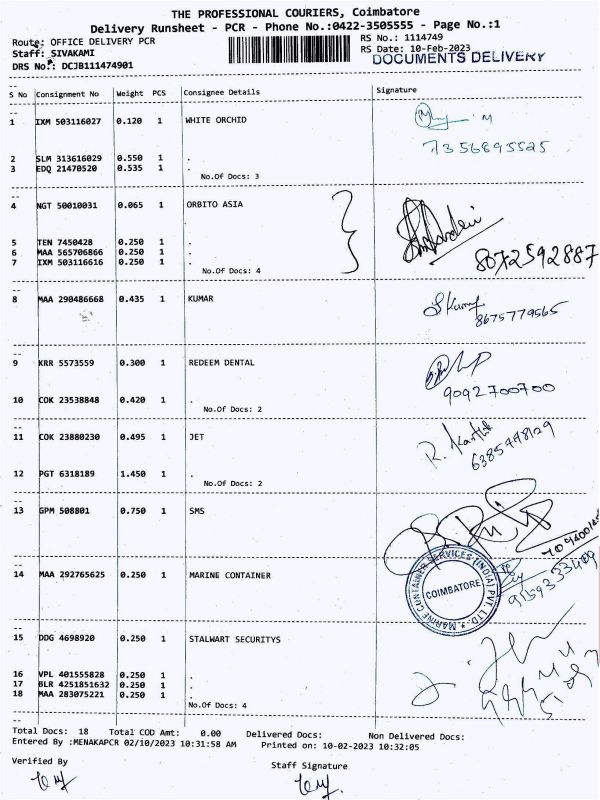 THE PROFESSIONAL COURIERS, Coimbatore
Delivery Runsheet - PCR - Phone No.:0422-3505555 - Page No.:1
Route: OFFICE DELIVERY PCR
RS No.: 1114749
Staff: SIVAKAMI
RS Date: 10-Feb-2023
DRS No.: DCJB111474901
DOCUMENTS DELIVERY
S No Consignment No Weight PCS Consignee Details Signature
1 IXM 503116027 0.120 1 WHITE ORCHID
7356895525
2 SLM 313616029 0.550 1 .
3 EDQ 21470520 0.535 1 .
No.Of Docs: 3
4 NGT 50010031 0.065 1 ORBITO ASIA
5 TEN 7450428 0.250 1 .
6 MAA 565706866 0.250 1 .
7 IXM 503116616 0.250 1 .
8072592887
No.Of Docs: 4
8 MAA 290486668 0.435 1 KUMAR
8675779565
9 KRR 5573559 0.300 1 REDEEM DENTAL
9092700700
10 COK 23538848 0.420 1 .
No.Of Docs: 2
11 COK 23880230 0.495 1 JET
R. Karthik
12 PGT 6318189 1.450 1 .
No.Of Docs: 2
13 GPM 508801 0.750 1 SMS
14 MAA 292765625 0.250 1 MARINE CONTAINER
MARINE CONTAINER SERVICES (INDIA) PVT. LTD.
COIMBATORE
15 DDG 4698920 0.250 1 STALWART SECURITYS
16 VPL 401555828 0.250 1 .
17 BLR 4251851632 0.250 1 .
18 MAA 283075221 0.250 1 .
No.Of Docs: 4
Total Docs: 18 Total COD Amt: 0.00 Delivered Docs: Non Delivered Docs:
Entered By :MENAKAPCR 02/10/2023 10:31:58 AM Printed on: 10-02-2023 10:32:05
Verified By
Staff Signature